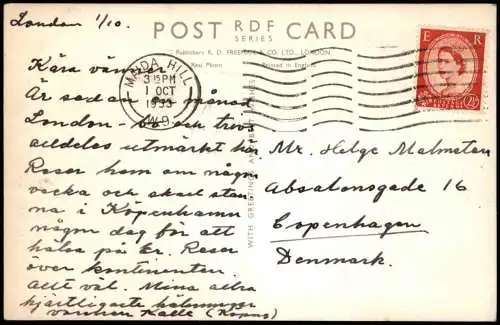 London 1/10.
POST CARD
RDF
SERIES
Publishers R. D. FREEMAN & CO LTD., LONDON
Printed in England
WITH GREETINGS AND BEST WISHES
MAIDA HILL
3 15 PM
1 OCT
1953
W.9.
E R
2½
Kära vänner
Är sedan en månad
London - bo och trivs
alldeles utmärkt här
Reser hem om någon
vecka och skall stan-
na i Köpenhamn
någon dag för att
hälsa på Er. Reser
över kontinenten.
Allt väl. Mina allra
hjärtligaste hälsningar
vännen Kalle
Mr. Helge Malmsten
Absalonsgade 16
Copenhagen
Denmark.